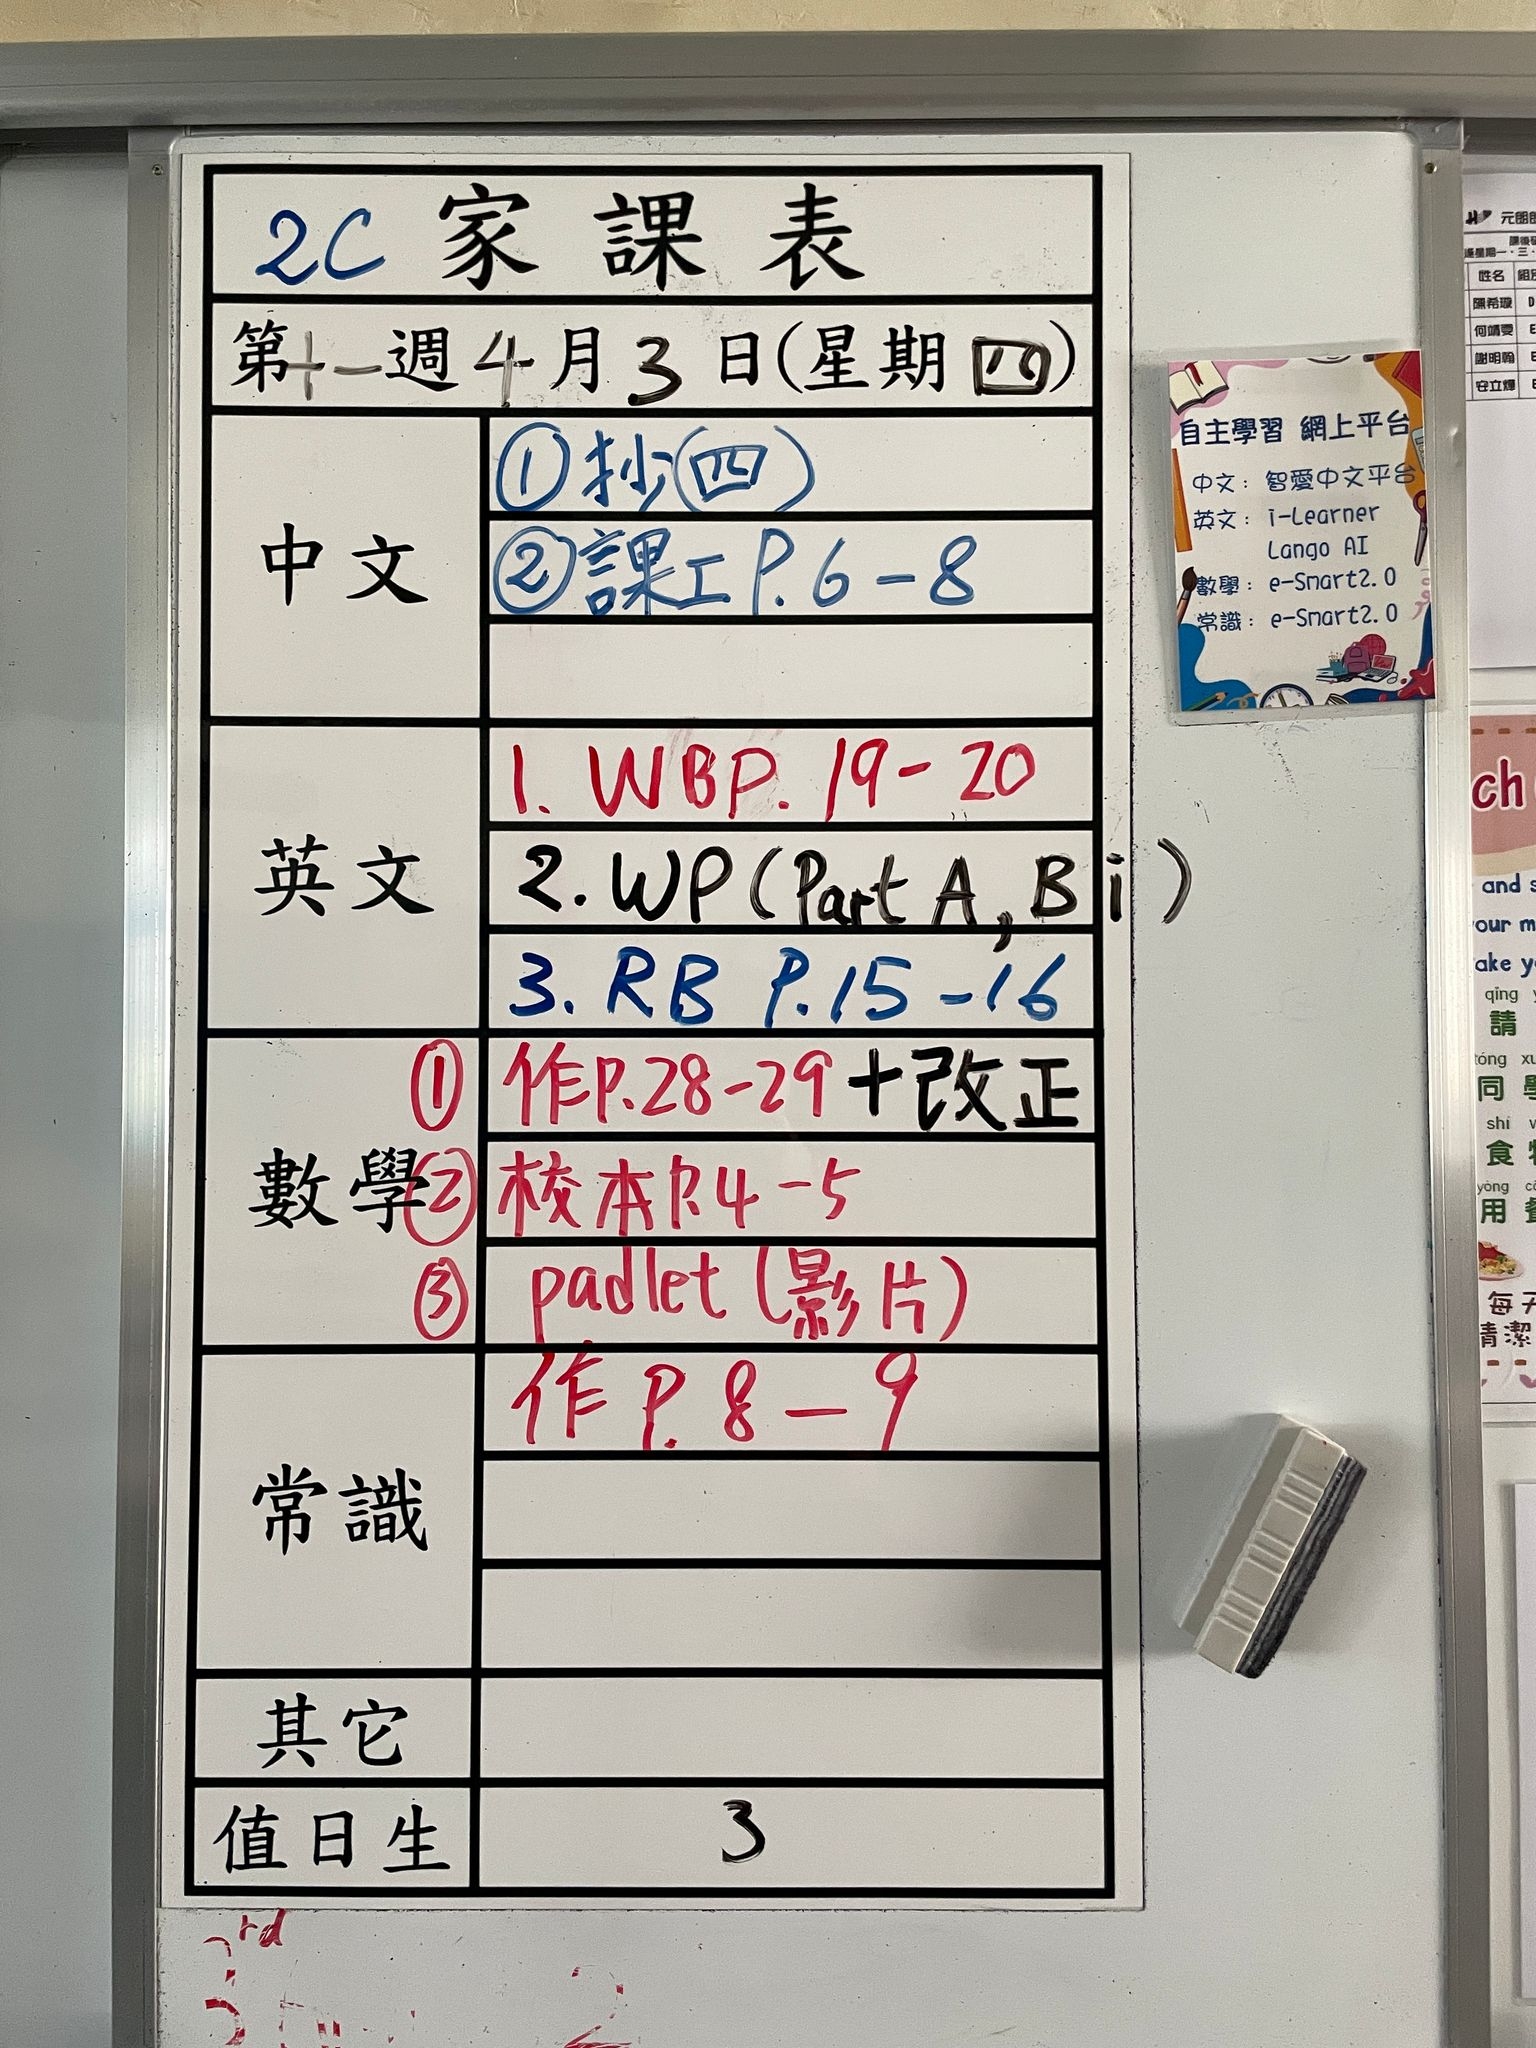 2C 家課表
第十一週4月3日(星期四)
中文
①抄(四)
②課工P.6-8
英文
1. WBP. 19-20
2. WP (Part A, Bi)
3. RB P.15-16
數學
① 作P.28-29+改正
② 校本P.4-5
③ padlet (影片)
常識
作 P. 8-9
其它
值日生
3
3rd
2
自主學習 網上平台
中文: 智愛中文平台
英文: i-Learner
Lango AI
數學: e-Smart2.0
常識: e-Smart2.0
元朗
姓名
陳希璇
何靖雯
謝明翰
安立輝
ch
and
our
ake
qīng
請
tóng
同
shí
食
yòng
用
每天
清潔